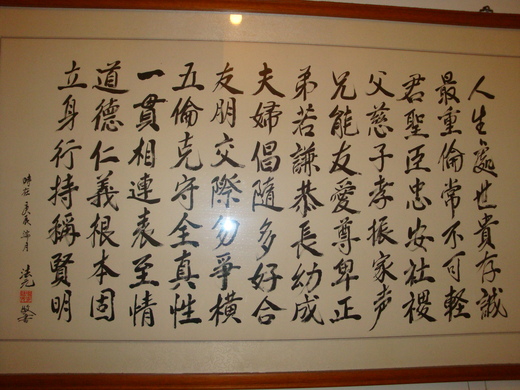 人生處世貴存誠
最重倫常不可輕
君聖臣忠安社稷
父慈子孝振家声
兄能友愛尊卑正
弟若謙恭長幼成
夫婦倡隨多好合
友朋交際勿爭橫
五倫克守全真性
一貫相連表至情
道德仁義根本固
立身行持稱賢明